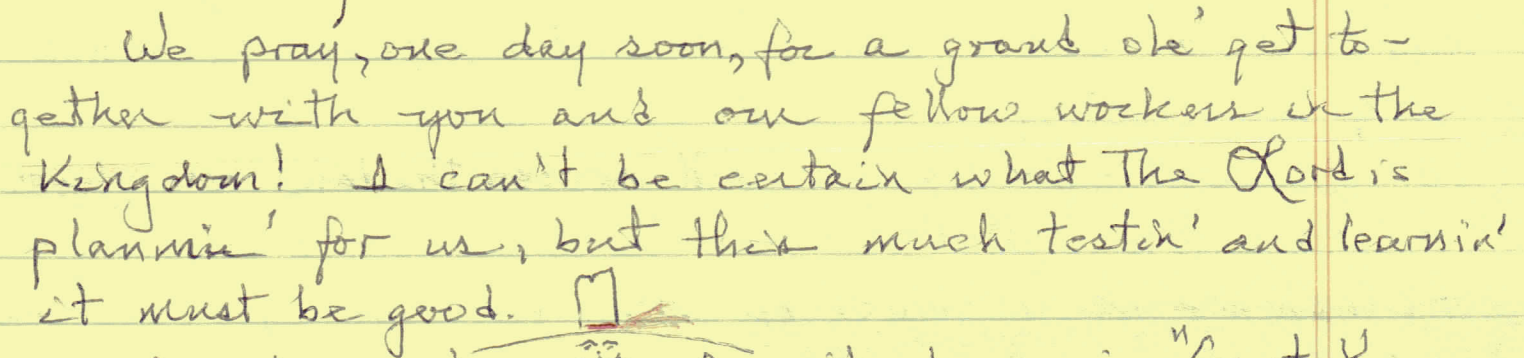 We pray, one day soon, for a grand ole' get to-
gether with you and our fellow workers in the
Kingdom! I can't be certain what The Lord is
plannin' for us, but this much testin' and learnin'
it must be good.